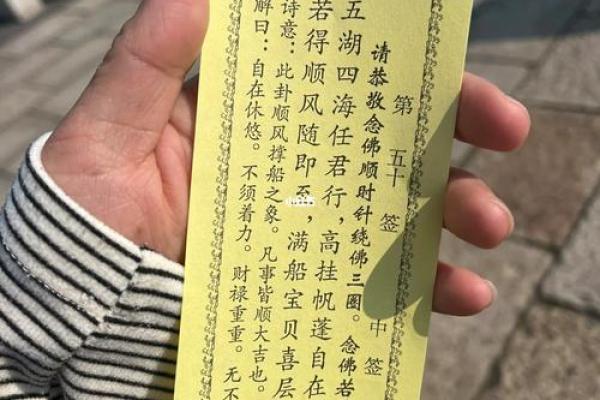 第五十签 中签
请恭敬念佛顺时针绕佛三圈。念佛若
五湖四海任君行，高挂帆蓬自在
若得顺风随即至，满船宝贝喜层
诗意：此卦顺风撑船之象。凡事皆顺大吉也。
解曰：自在休悠。不须着力。财禄重重。无不